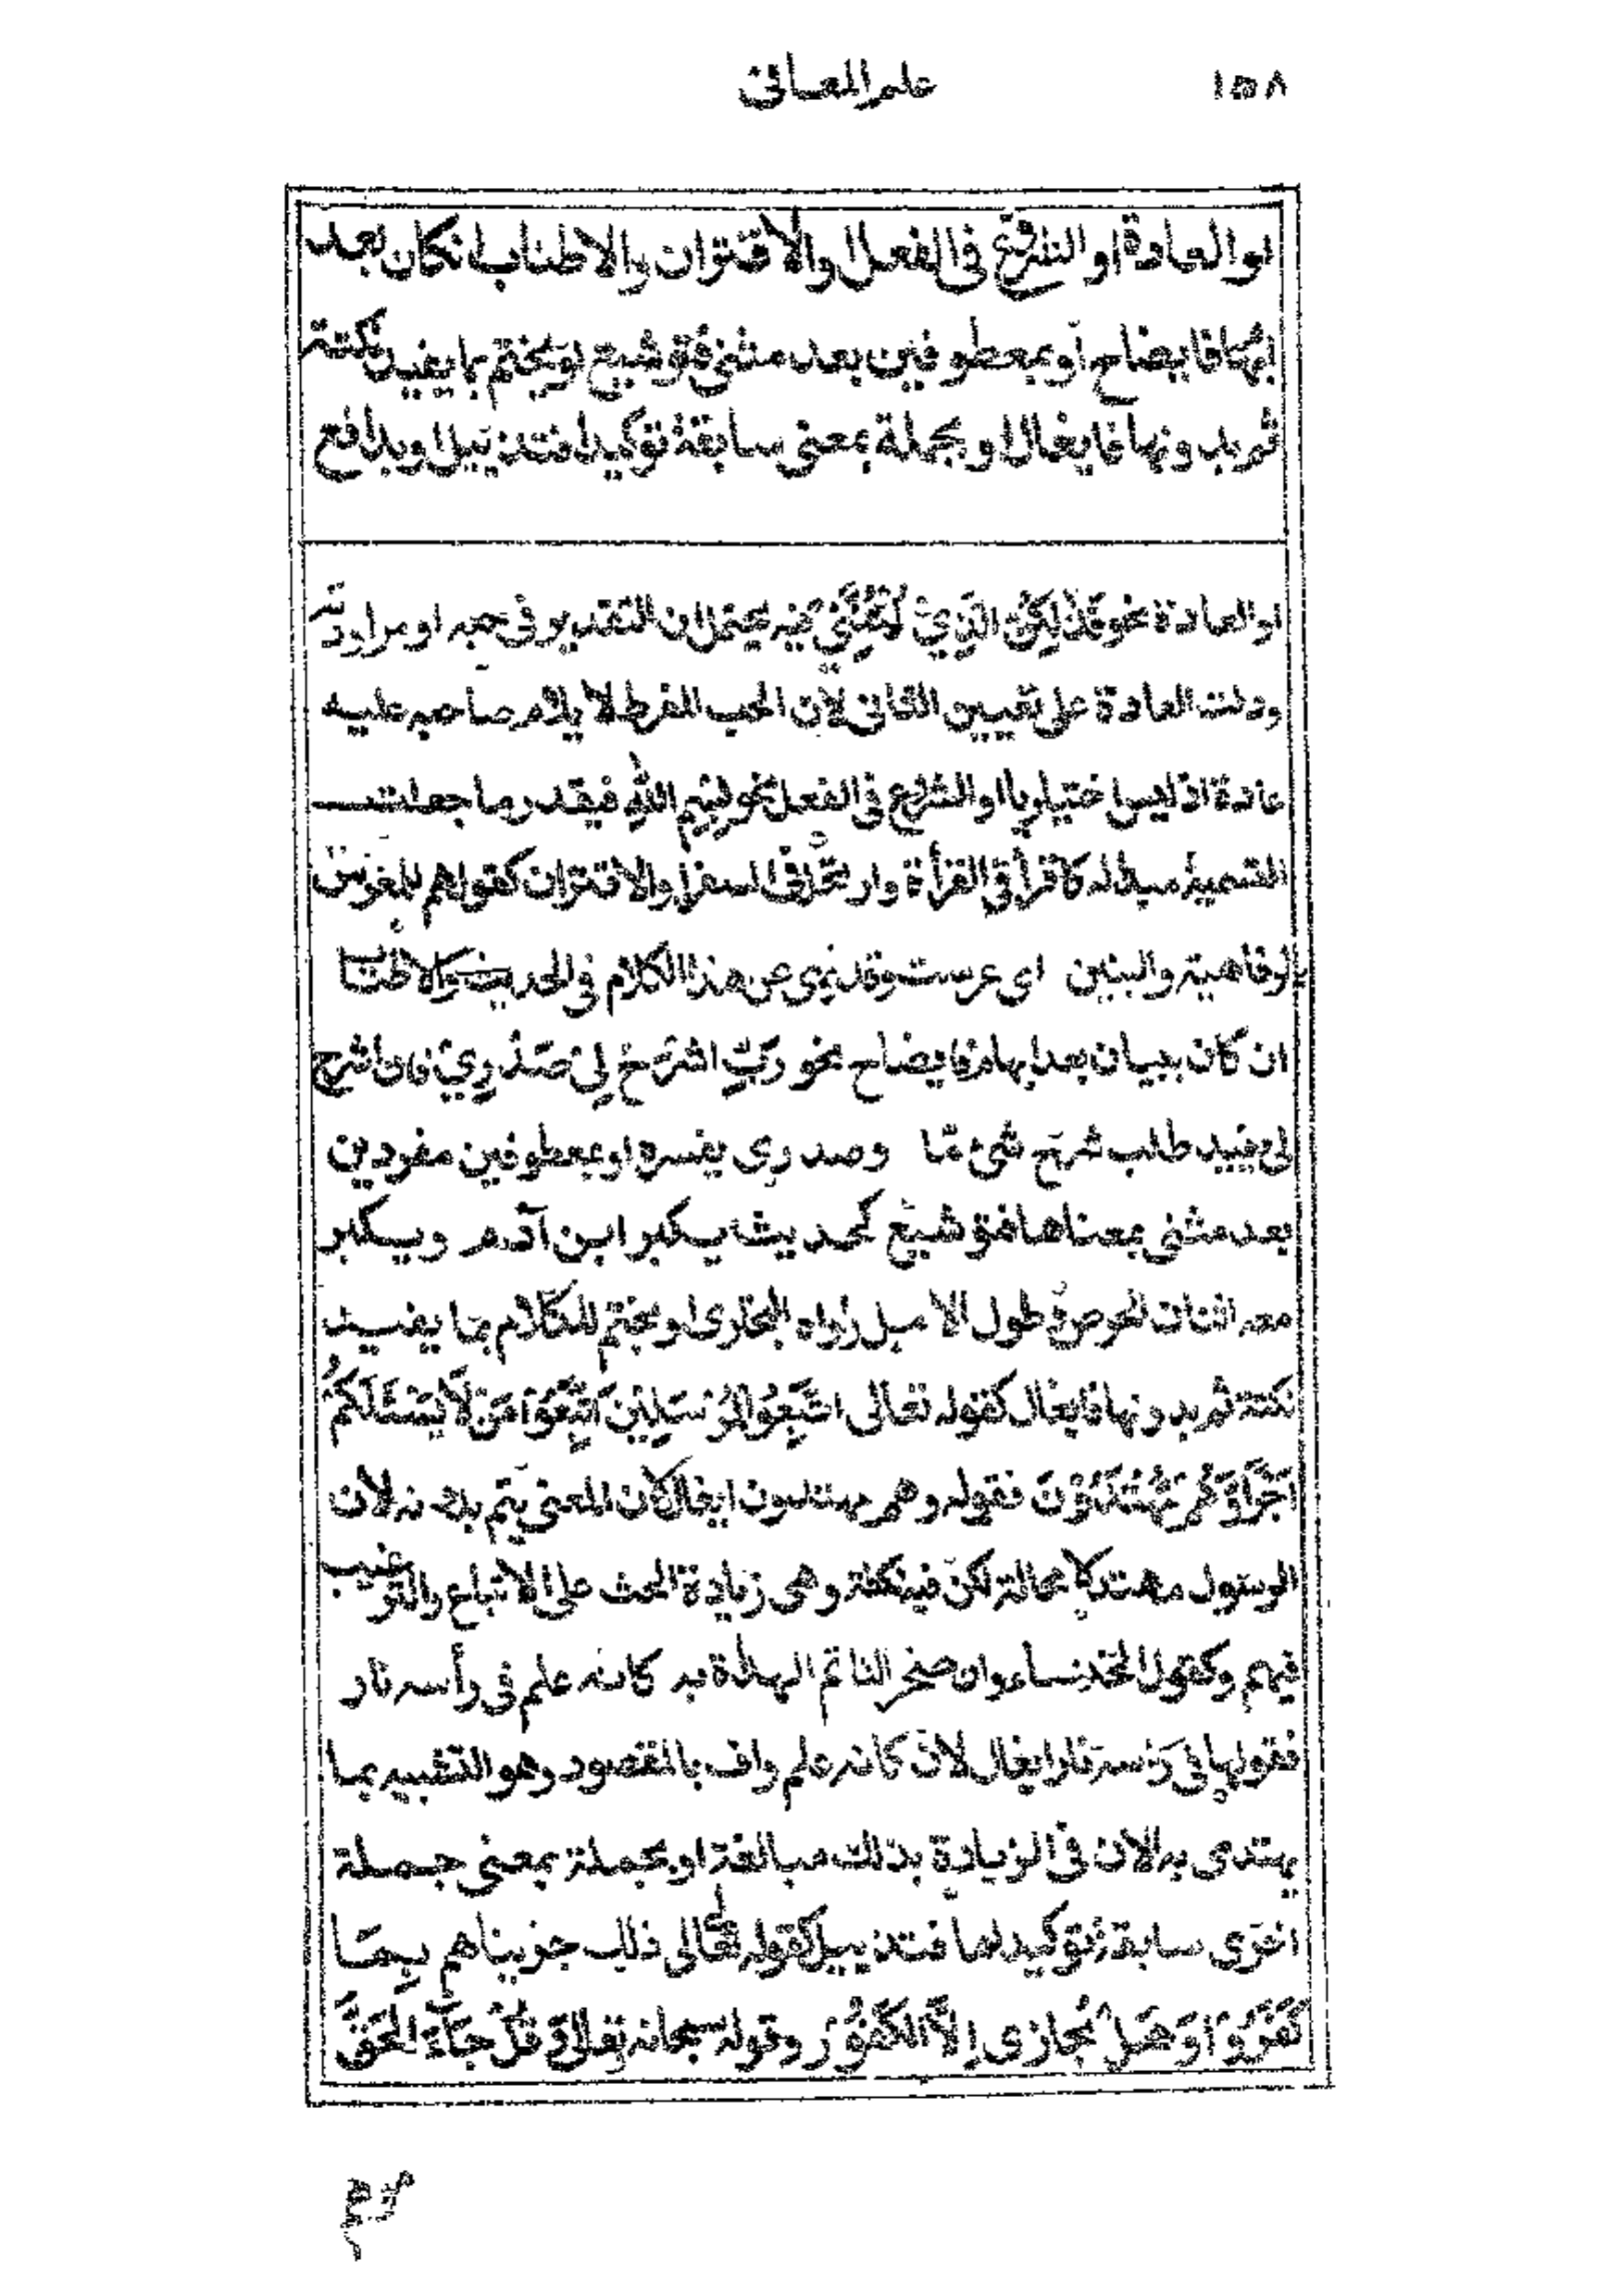 ١٥٨
علم المعانى
او العادة او الشروع فى الفعل او الاقتران والاطناب انكان بعد
ابهام فايضاح او بمعطوفين بعد مثنى فتوشيع او بختم بما يفيد نكتة
ثم بدونها فايغال او بجملة بمعنى سابقة توكيدا فتذييل او بدافع
او العادة نحو فَذٰلِكُنَّ الَّذِىْ لُمْتُنَّنِىْ فِيْهِ يحتمل ان التقدير فى حبه او مراودته
ودلت العادة على تعيين الثانى لان الحب المفرط لا يلام صاحبه عليه
عادة اذ ليس اختياريا او الشروع فى الفعل نحو بسم الله فيقدر ما جعلت
التسمية مبدا له كاقرأ فى القرأة وارتحل فى السفر او الاقتران كقولهم للمعرس
بالرفاهية والبنين اى عرست وقد نهى عن هذا الكلام فى الحديث والاطناب
ان كان ببيان بعد ابهام فايضاح نحو رَبِّ اشْرَحْ لِىْ صَدْرِىْ فان اشرح
لى يفيد طلب شرح شئ مّا وصدرى يفسره او بمعطوفين مفردين
بعد مثنى بمعناهما فتوشيع كحديث يكبر ابن آدم ويكبر
معه اثنان الحرص وطول الامل رواه البخارى او بختم للكلام بما يفيد
نكتة ثم بدونها فايغال كقوله تعالى اتَّبِعُوا الْمُرْسَلِيْنَ اتَّبِعُوْا مَنْ لَّا يَسْئَلُكُمْ
اَجْرًا وَّهُمْ مُّهْتَدُوْنَ فقوله وهم مهتدون ايغال لان المعنى يتم بدونه لان
الرسول مهتد لا محالة لكن فيه نكتة وهى زيادة الحث على الاتباع والترغيب
فيهم وكقول الخنساء وان صخر التاتم الهداة به كانه علم فى رأسه نار
فقولها فى رَأسه نار ايغال لان كانه علم واف بالمقصود وهو التشبيه بما
يهتدى به الا ان فى الزيادة بذلك مبالغة او بجملة بمعنى جملة
اخرى سابقة توكيد لها فتذييل كقوله تعالى ذلك جزيناهم بِمَا
كَفَرُوْا وَهَلْ نُجازى اِلَّا الْكَفُوْرَ وقوله سبحانه وتعالى وَقُلْ جَآءَ الْحَقُّ